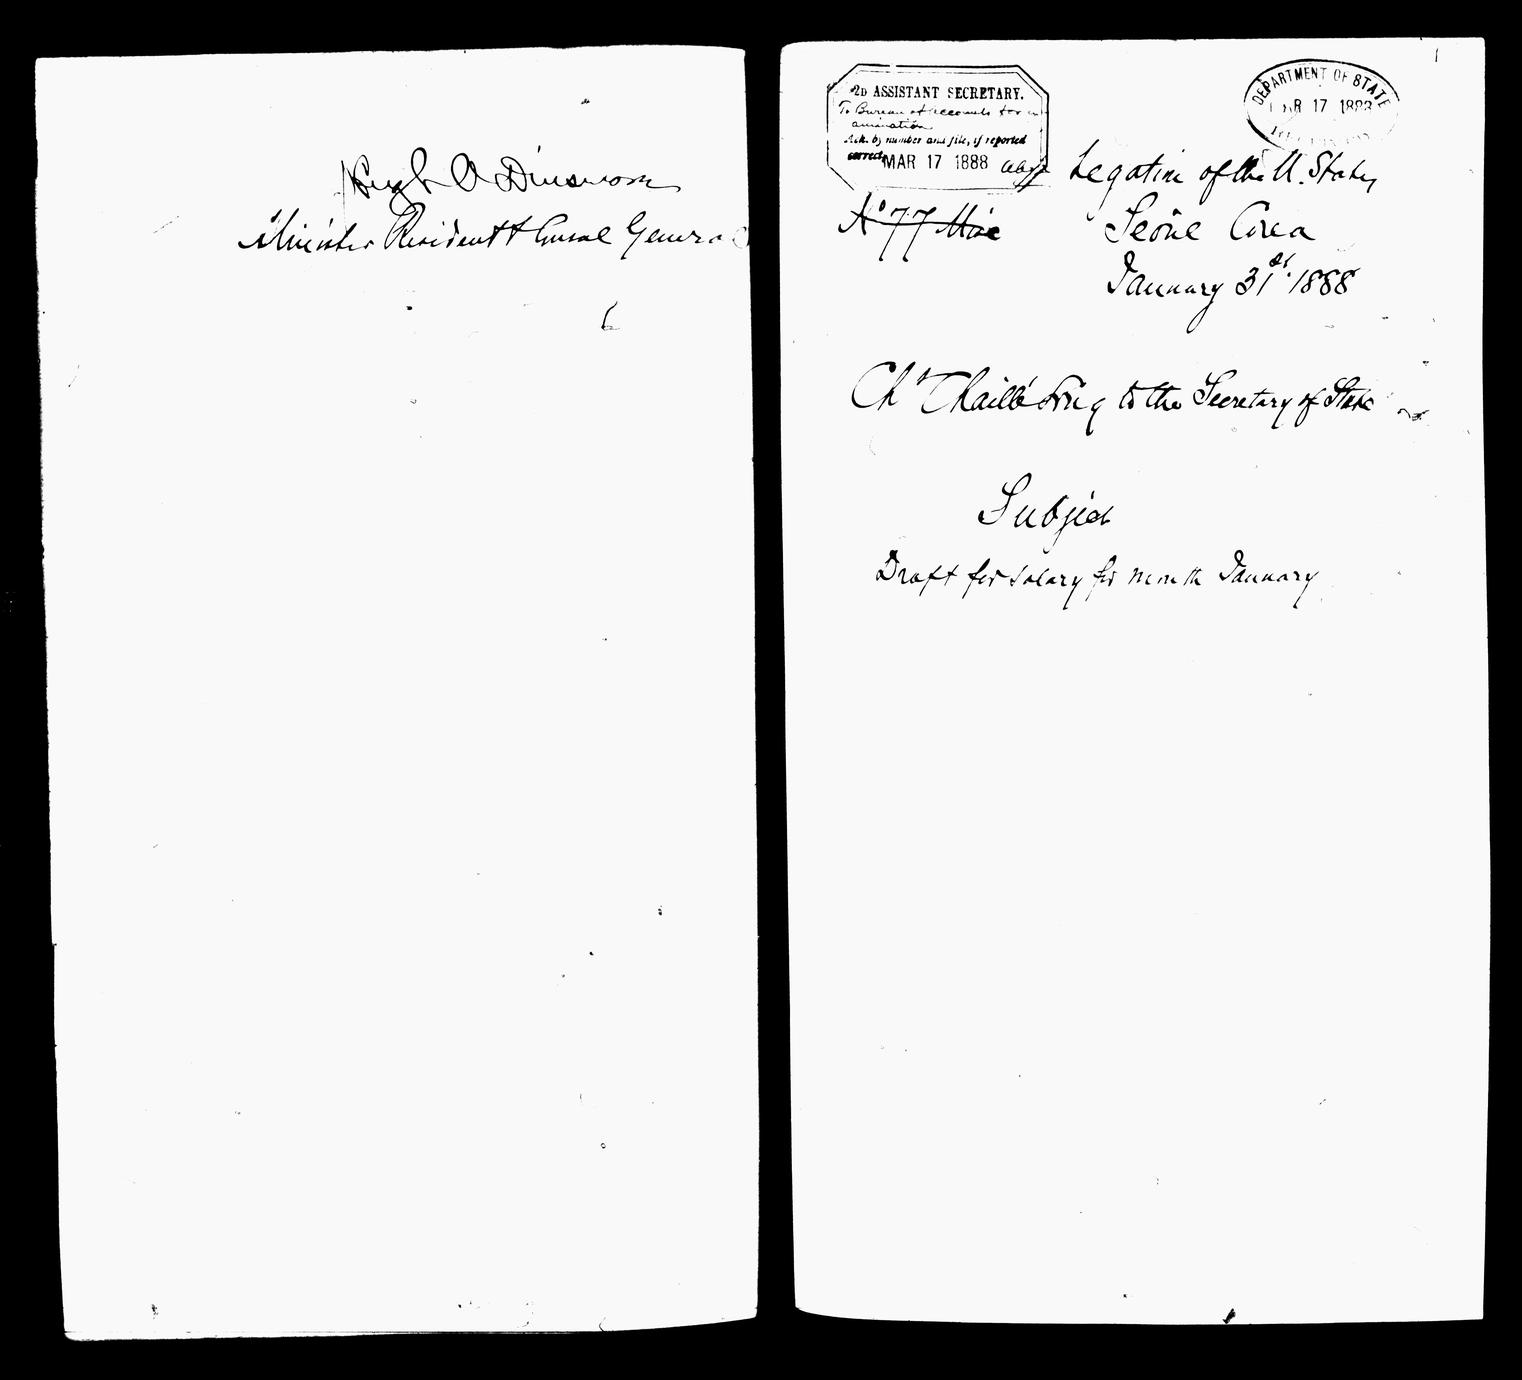 Hugh A Dinsmore
Minister Resident & Consul General
2D ASSISTANT SECRETARY.
To Bureau of Accounts for ex-
amination
Ack. by number and file, if reported
correct.
MAR 17 1888
DEPARTMENT OF STATE
MAR 17 1888
Legation of the U. States
No 77 Misc
Seoul Corea
January 31st. 1888
Ch. Chaillé Long to the Secretary of State
Subject
Draft for Salary for month January